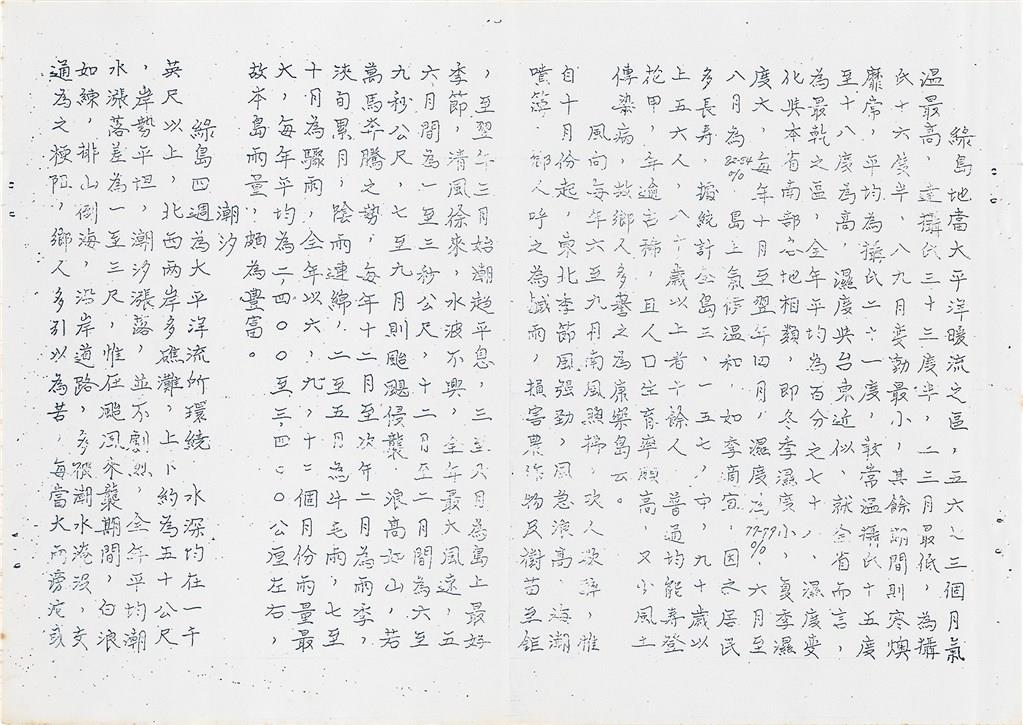 綠島地當大平洋暖流之區，五六七三個月氣
溫最高，達攝氏三十三度半，一二三月最低，為攝
氏十六度半，八九月變動最小，其餘期間則寒燠
靡常，平均為攝氏二六·一度，較常溫攝氏十五度
至十八度為高，濕度與台東近似，就全省而言，
為最乾之區，全年平均為百分之七十八，濕度變
化與本省南部各地相類，即冬季濕度小，夏季濕
度大，每年十月至翌年四月，濕度為77-79%，六月至
八月為82-84%，島上氣候溫和，如季適宜，因之居民
多長壽，據統計全島三、一五七人中，九十歲以
上五六人，八十歲以上者十餘人，普通均能壽登
花甲，年逾古稀，且人口生育率頗高，又少風土
傳染病，故鄉人多譽之為康樂島云。
風向每年六至九月南風照拂，次人次驛，惟
自十月份起，東北季節風强勁，風急浪高，海潮
噴篩，鄉人呼之為鹹雨，損害農作物及樹苗至鉅
，至翌年三月始潮趋平息，三至六月為島上最好
季節，清風徐來，水波不興，全年最大風速，五
六月間為一至三秒公尺，十二月至二月間為六至
九秒公尺，七至九月則颱颶侵襲，浪高如山，若
萬馬奔騰之勢，每年十二月至次年二月為雨季，
浹旬累月，陰雨連綿，二至五月為牛毛雨，七至
十月為驟雨，全年以六，九，十二個月份雨量最
大，每年平均為二，四〇〇至三，四〇〇公厘左右，
故本島雨量，頗為豐富。
潮汐
綠島四週為大平洋流所環繞，水深均在一千
英尺以上，北西兩岸多礁灘，上下約為五十公尺
，岸勢平坦，潮汐漲落，並不劇烈，全年平均潮
水漲落差為一至三尺，惟在颱風來襲期間，白浪
如練，排山倒海，沿岸道路，多被潮水淹沒，交
通為之梗阻，鄉人多引以為苦，每當大雨滂沱或